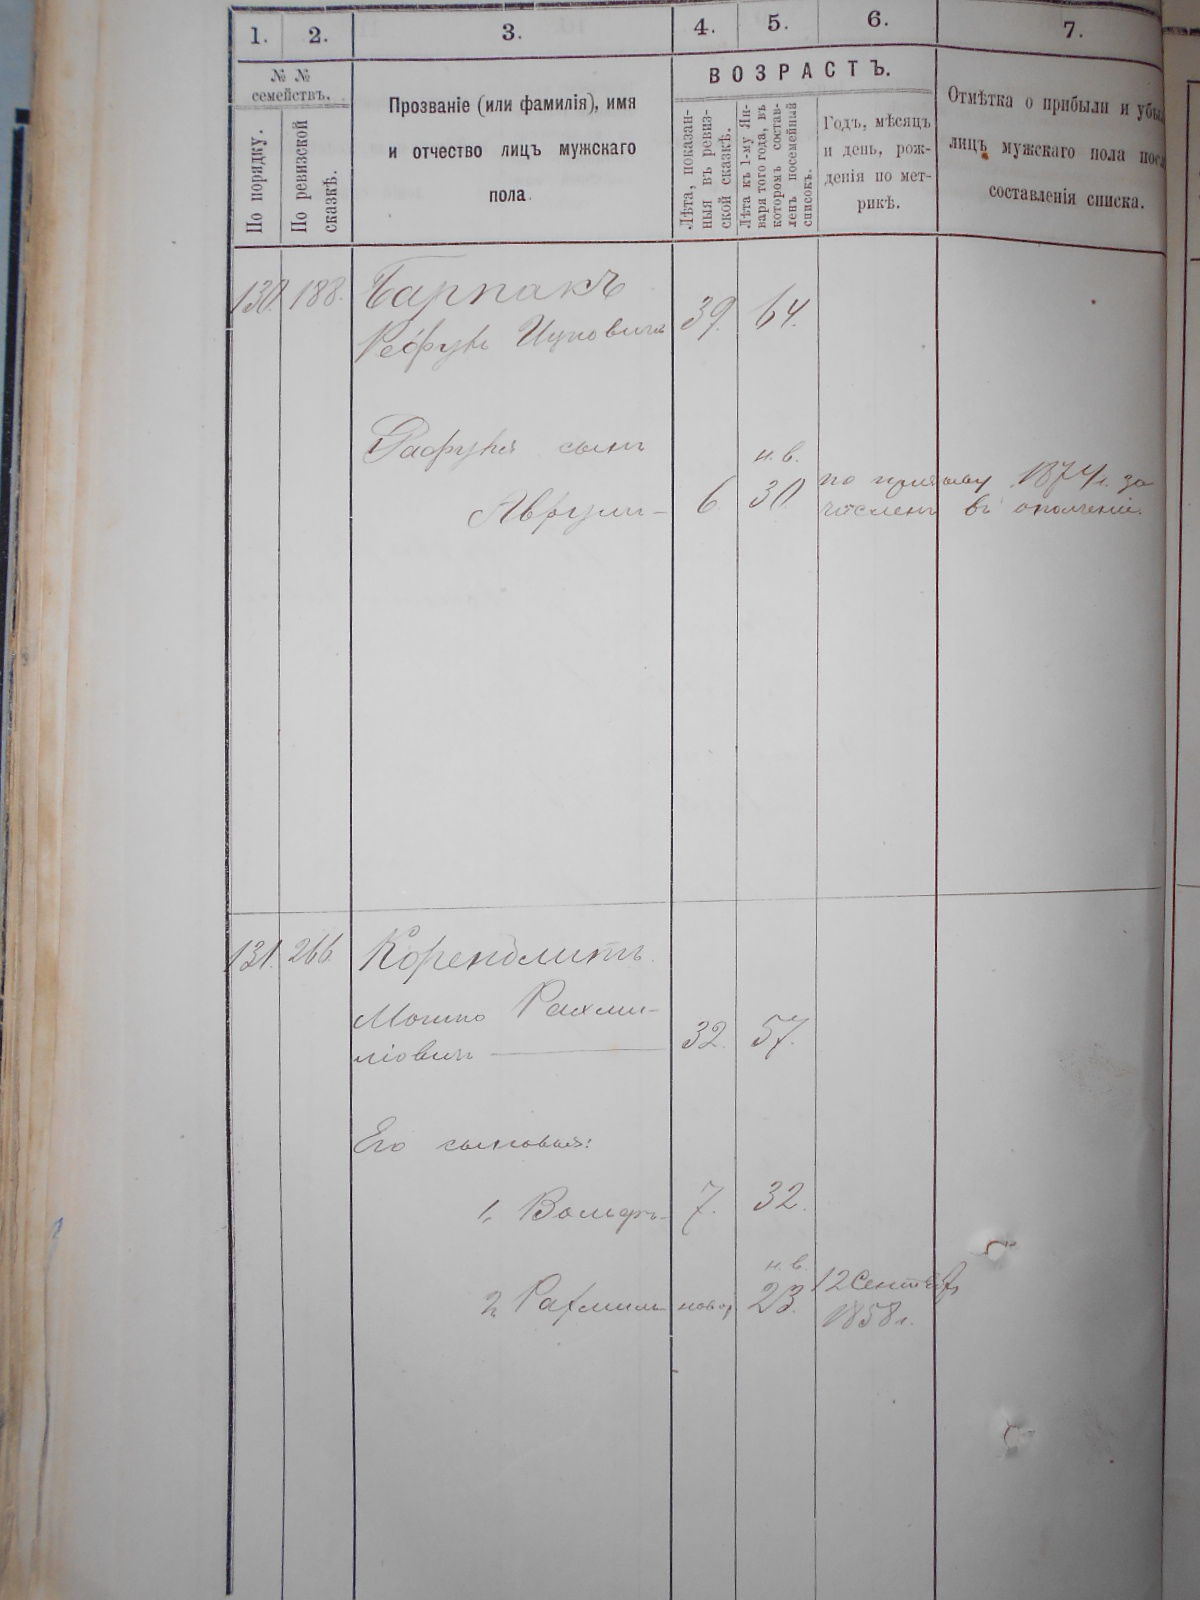 1. 2. 3. 4. 5. 6. 7.
№ № семействъ.
По порядку.
По ревизской сказкѣ.
Прозваніе (или фамилія), имя
и отчество лицъ мужскаго
пола.
ВОЗРАСТЪ.
Лѣта, показан-
ныя въ ревиз-
ской сказкѣ.
Лѣта къ 1-му Ян-
варя того года, въ
которомъ состав-
ленъ посемейный
списокъ.
Годъ, мѣсяцъ
и день, рож-
денія по мет-
рикѣ.
Отмѣтка о прибыли и убы
лицъ мужскаго пола посл
составленія списка.
130. 188. Барпакъ
Рефулъ Ицковичъ 39. 64.
сынъ н. в.
Аврумъ 6. 30. по призыву 1874 г. за
численъ въ ополченіе.
131. 266.
Мошко Рахми-
ліовичъ 32. 57.
Его сыновья:
1, Вольфъ 7. 32.
н. в.
2, Рахмиль новор. 23. 12 Сентября
1858 г.